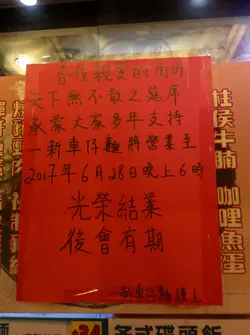 各位親愛的街坊
天下無不散之筵席
承蒙大家多年支持
一新車仔麵將營業至
2017年6月28日晚上6時
光榮結業
後會有期
一新車仔麵謹上
柱侯牛腩
咖哩魚蛋
各式碟頭飯